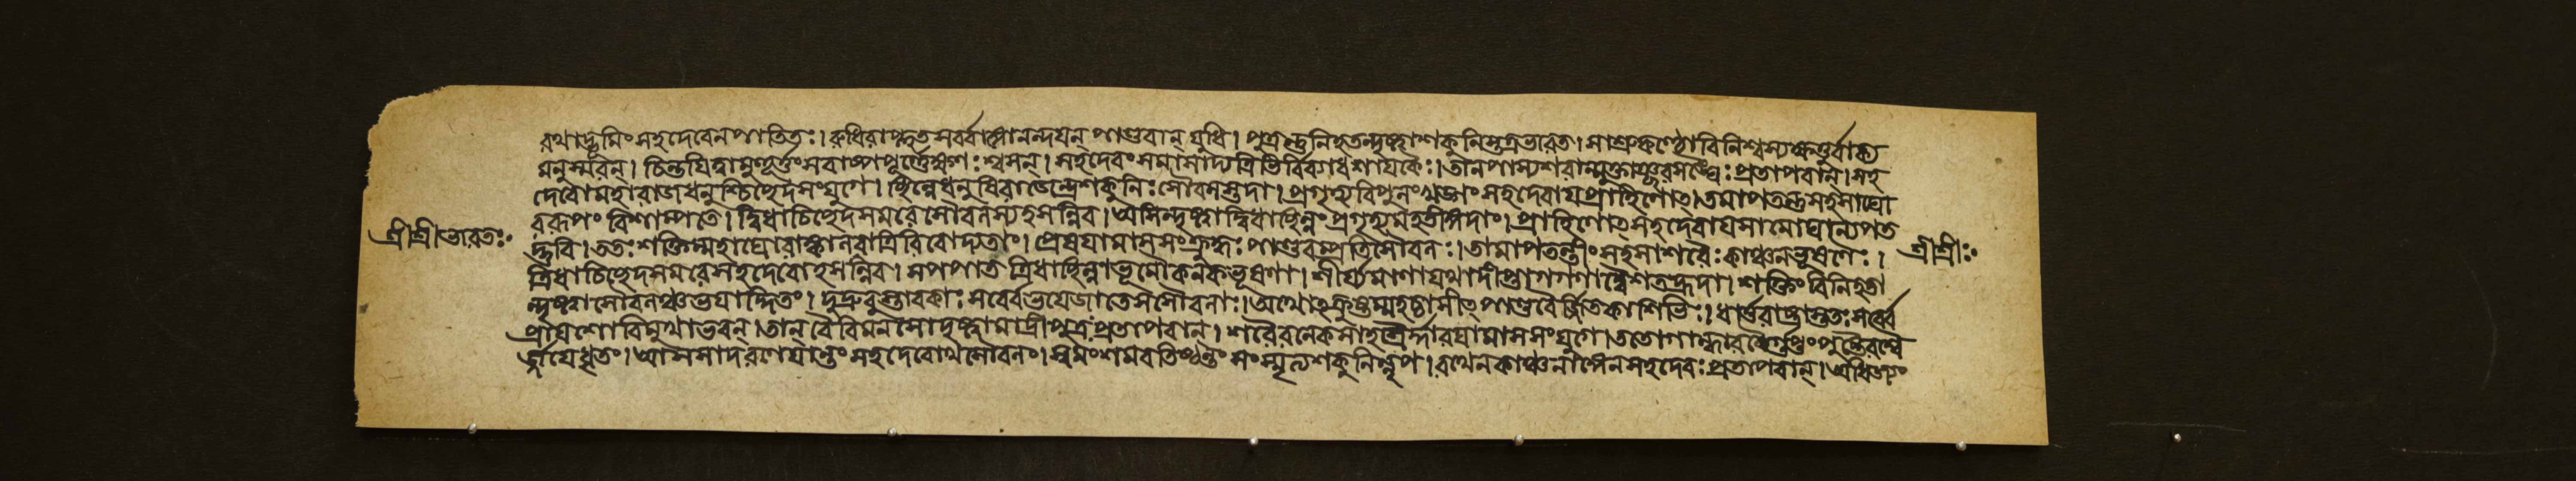 রথাদ্ভূমিং সহদেবেন পাতিতঃ। রুধিরাপ্লুতসর্ব্বাঙ্গোনন্দযন্ পাণ্ডবান্ যুধি। পুত্রন্তুনিহতন্দৃষ্ট্বাশকুনিস্তত্রভারত। সাশ্রুকণ্ঠোবিনিশ্বস্যক্ষত্তুর্বাক্য
মনুস্মরন্। চিন্তযিত্বামুহূর্ত্তংসবাষ্পপূর্ণেক্ষণঃশ্বসন্। সহদেবংসমাসাদ্যত্রিভির্বিব্যাধশাযকৈঃ। তানপাস্যশরান্মুক্তাঞ্ছরসঙ্ঘৈঃপ্রতাপবান্। সহ
দেবোমহারাজধনুশ্চিচ্ছেদসংযুগে। ছিন্নেধনুষিরাজেন্দ্রশকুনিঃসৌবলস্তদা। প্রগৃহ্যবিপুলংখড্গংসহদেবাযপ্রাহিণোৎ। তমাপতন্তংসহসাঘো
ররূপং বিশাম্পতে। দ্বিধাচিচ্ছেদসমরেসৌবলস্যহসন্নিব। অসিন্দৃষ্ট্বাদ্বিধাচ্ছিন্নং প্রগৃহ্যমহতীঙ্গদাং। প্রাহিণোৎসহদেবাযসামোঘান্যপত
শ্রীশ্রীভারতঃ
দ্ভুবি। ততঃশক্তিম্মহাঘোরাঙ্কালরাত্রিমিবোদ্যতাং। প্রেষযামাসসংক্রুদ্ধঃপাণ্ডবম্প্রতিসৌবলঃ। তামাপতন্তীংসহসাশরৈঃকাঞ্চনভূষণৈঃ।
শ্রীশ্রীঃ
ত্রিধাচিচ্ছেদসমরেসহদেবোহসন্নিব। সাপপাতত্রিধাছিন্নাভূমৌকনকভূষণা। শীর্য্যমাণাযথাদীপ্তাগগণাদ্বৈশতহ্রদা। শক্তিংবিনিহতা
ন্দৃষ্ট্বাসৌবলঞ্চভযার্দ্দিতং। দুদ্রুবুস্তাবকাঃসর্ব্বেভযেজাতেসসৌবলাঃ। অথোৎক্রুষ্টম্মহচ্চাসীৎপাণ্ডবৈর্জ্জিতকাশিভিঃ। ধার্ত্তরাষ্ট্রাস্ততঃসর্ব্বে
প্রাযশোবিমুখাভবন্। তান্ বৈবিমনসোদৃষ্ট্বামাদ্রীপুত্রঃপ্রতাপবান্। শরৈরনেকসাহস্রৈর্ব্বারযামাসসংযুগে। ততোগান্ধারকৈর্গুপ্তংপুষ্টৈরশ্বৈ
র্জ্জযেধৃতং। আসসাদরণেযান্তং সহদেবোথসৌবলং। স্বমংশমবশিষ্টন্তংসংস্মৃত্যশকুনিন্নৃপ। রথেনকাঞ্চনাঙ্গেনসহদেবঃপ্রতাপবান্। অধিজ্যং